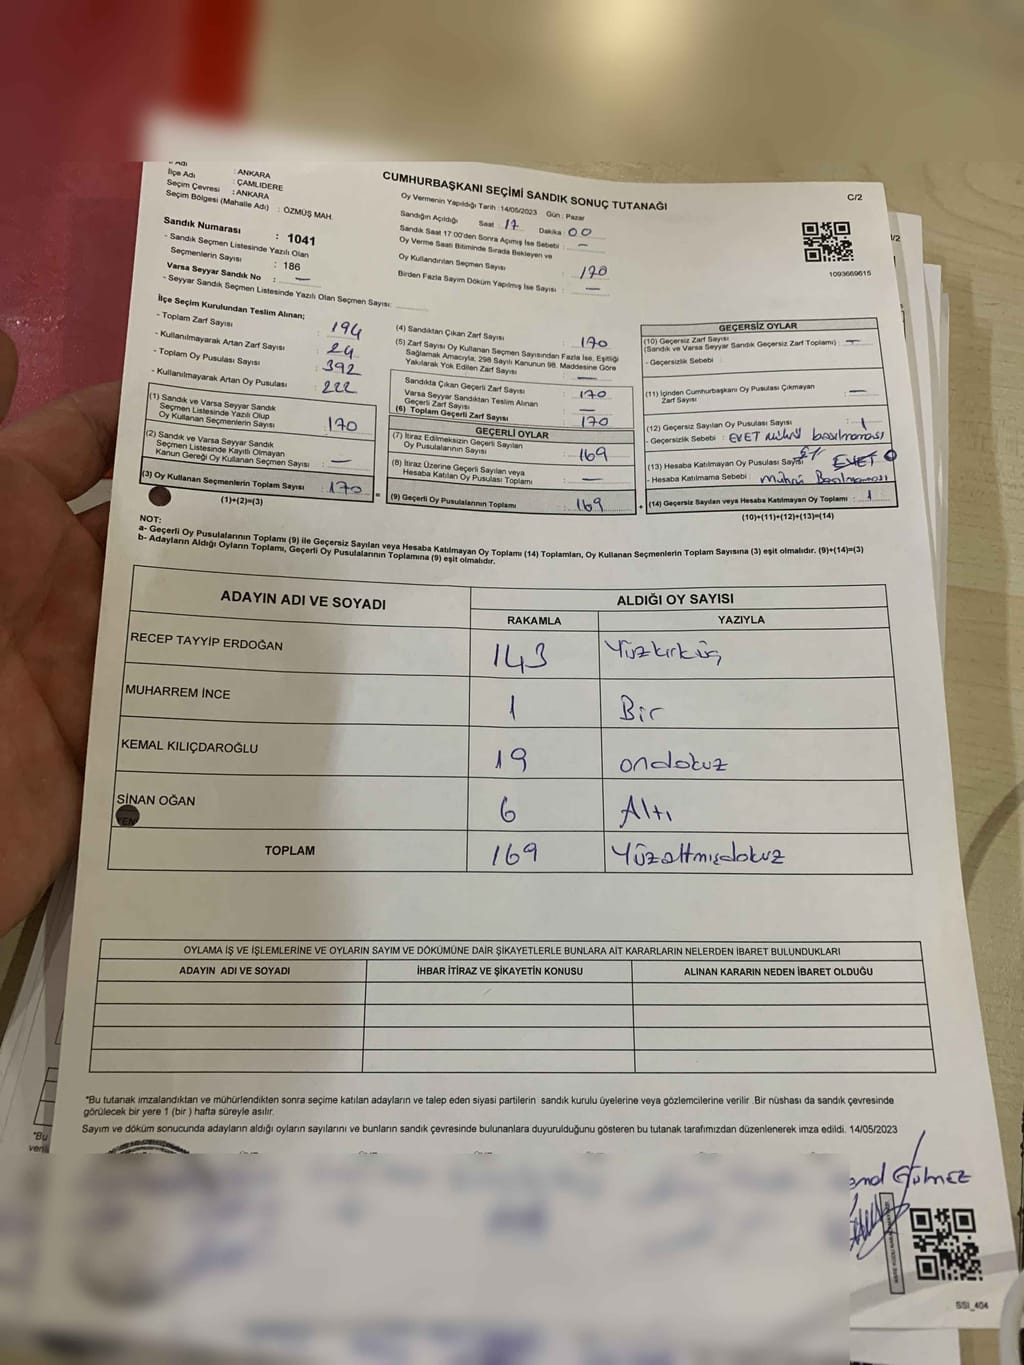 İlçe Adı : ANKARA
Seçim Çevresi : ÇAMLIDERE
Seçim Bölgesi (Mahalle Adı) : ANKARA
: ÖZMÜŞ MAH.
CUMHURBAŞKANI SEÇİMİ SANDIK SONUÇ TUTANAĞI
C/2
Oy Vermenin Yapıldığı Tarih :14/05/2023 Gün : Pazar
Sandığın Açıldığı Saat : 17 Dakika 00
Sandık Saat 17:00'den Sonra Açılmış İse Sebebi : —
Oy Verme Saati Bitiminde Sırada Bekleyen ve
Oy Kullandırılan Seçmen Sayısı : 170
Birden Fazla Sayım Döküm Yapılmış İse Sayısı : —
1093669615
Sandık Numarası : 1041
- Sandık Seçmen Listesinde Yazılı Olan
Seçmenlerin Sayısı : 186
Varsa Seyyar Sandık No : —
- Seyyar Sandık Seçmen Listesinde Yazılı Olan Seçmen Sayısı:
İlçe Seçim Kurulundan Teslim Alınan;
- Toplam Zarf Sayısı : 194
- Kullanılmayarak Artan Zarf Sayısı : 24
- Toplam Oy Pusulası Sayısı : 392
- Kullanılmayarak Artan Oy Pusulası : 222
(1) Sandık ve Varsa Seyyar Sandık
Seçmen Listesinde Yazılı Olup
Oy Kullanan Seçmenlerin Sayısı : 170
(2) Sandık ve Varsa Seyyar Sandık
Seçmen Listesinde Kayıtlı Olmayan
Kanun Gereği Oy Kullanan Seçmen Sayısı : —
(3) Oy Kullanan Seçmenlerin Toplam Sayısı : 170
(1)+(2)=(3)
(4) Sandıktan Çıkan Zarf Sayısı : 170
(5) Zarf Sayısı Oy Kullanan Seçmen Sayısından Fazla İse, Eşitliği
Sağlamak Amacıyla; 298 Sayılı Kanunun 98. Maddesine Göre
Yakılarak Yok Edilen Zarf Sayısı : —
Sandıkta Çıkan Geçerli Zarf Sayısı : 170
Varsa Seyyar Sandıktan Teslim Alınan
Geçerli Zarf Sayısı : —
(6) Toplam Geçerli Zarf Sayısı : 170
GEÇERLİ OYLAR
(7) İtiraz Edilmeksizin Geçerli Sayılan
Oy Pusulalarının Sayısı : 169
(8) İtiraz Üzerine Geçerli Sayılan veya
Hesaba Katılan Oy Pusulası Toplamı : —
= (9) Geçerli Oy Pusulalarının Toplamı : 169
GEÇERSİZ OYLAR
(10) Geçersiz Zarf Sayısı
(Sandık ve Varsa Seyyar Sandık Geçersiz Zarf Toplamı) : —
- Geçersizlik Sebebi :
(11) İçinden Cumhurbaşkanı Oy Pusulası Çıkmayan
Zarf Sayısı : —
(12) Geçersiz Sayılan Oy Pusulası Sayısı : 1
- Geçersizlik Sebebi : EVET mührü basılmaması
(13) Hesaba Katılmayan Oy Pusulası Sayısı EVET
- Hesaba Katılmama Sebebi : mührü Basılmaması
+ (14) Geçersiz Sayılan veya Hesaba Katılmayan Oy Toplamı : 1
(10)+(11)+(12)+(13)=(14)
NOT:
a- Geçerli Oy Pusulalarının Toplamı (9) ile Geçersiz Sayılan veya Hesaba Katılmayan Oy Toplamı (14) Toplamları, Oy Kullanan Seçmenlerin Toplam Sayısına (3) eşit olmalıdır. (9)+(14)=(3)
b- Adayların Aldığı Oyların Toplamı, Geçerli Oy Pusulalarının Toplamına (9) eşit olmalıdır.
ADAYIN ADI VE SOYADI ALDIĞI OY SAYISI
RAKAMLA YAZIYLA
RECEP TAYYİP ERDOĞAN 143 Yüzkırküç
MUHARREM İNCE 1 Bir
KEMAL KILIÇDAROĞLU 19 ondokuz
SİNAN OĞAN 6 Altı
TOPLAM 169 Yüzaltmışdokuz
OYLAMA İŞ VE İŞLEMLERİNE VE OYLARIN SAYIM VE DÖKÜMÜNE DAİR ŞİKAYETLERLE BUNLARA AİT KARARLARIN NELERDEN İBARET BULUNDUKLARI
ADAYIN ADI VE SOYADI İHBAR İTİRAZ VE ŞİKAYETİN KONUSU ALINAN KARARIN NEDEN İBARET OLDUĞU
*Bu tutanak imzalandıktan ve mühürlendikten sonra seçime katılan adayların ve talep eden siyasi partilerin sandık kurulu üyelerine veya gözlemcilerine verilir .Bir nüshası da sandık çevresinde
görülecek bir yere 1 (bir ) hafta süreyle asılır.
Sayım ve döküm sonucunda adayların aldığı oyların sayılarını ve bunların sandık çevresinde bulunanlara duyurulduğunu gösteren bu tutanak tarafımızdan düzenlenerek imza edildi. 14/05/2023
Gülmez
SSI_404